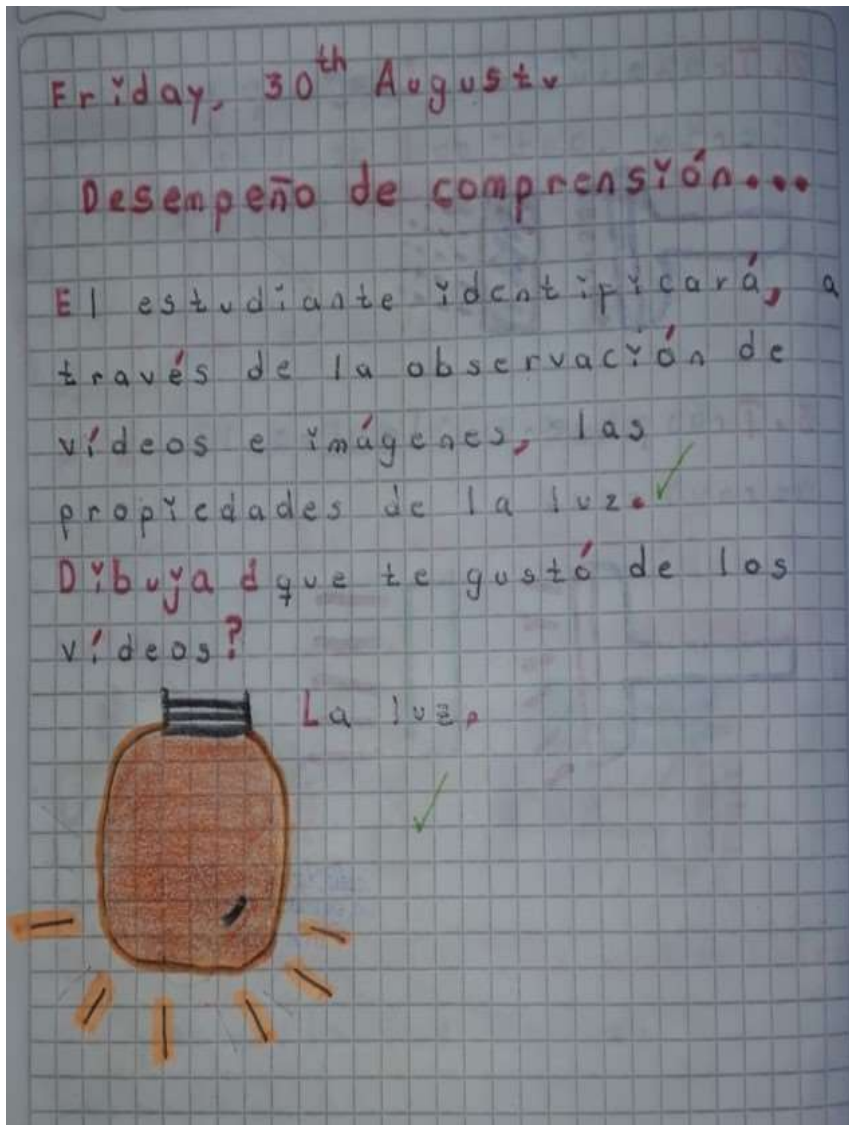 Friday, 30th Augustv
Desempeño de comprensión...
El estudiante identificará, a
través de la observación de
vídeos e imágenes, las
propiedades de la luz.
Dibuja ¿que te gustó de los
vídeos?
La luz.